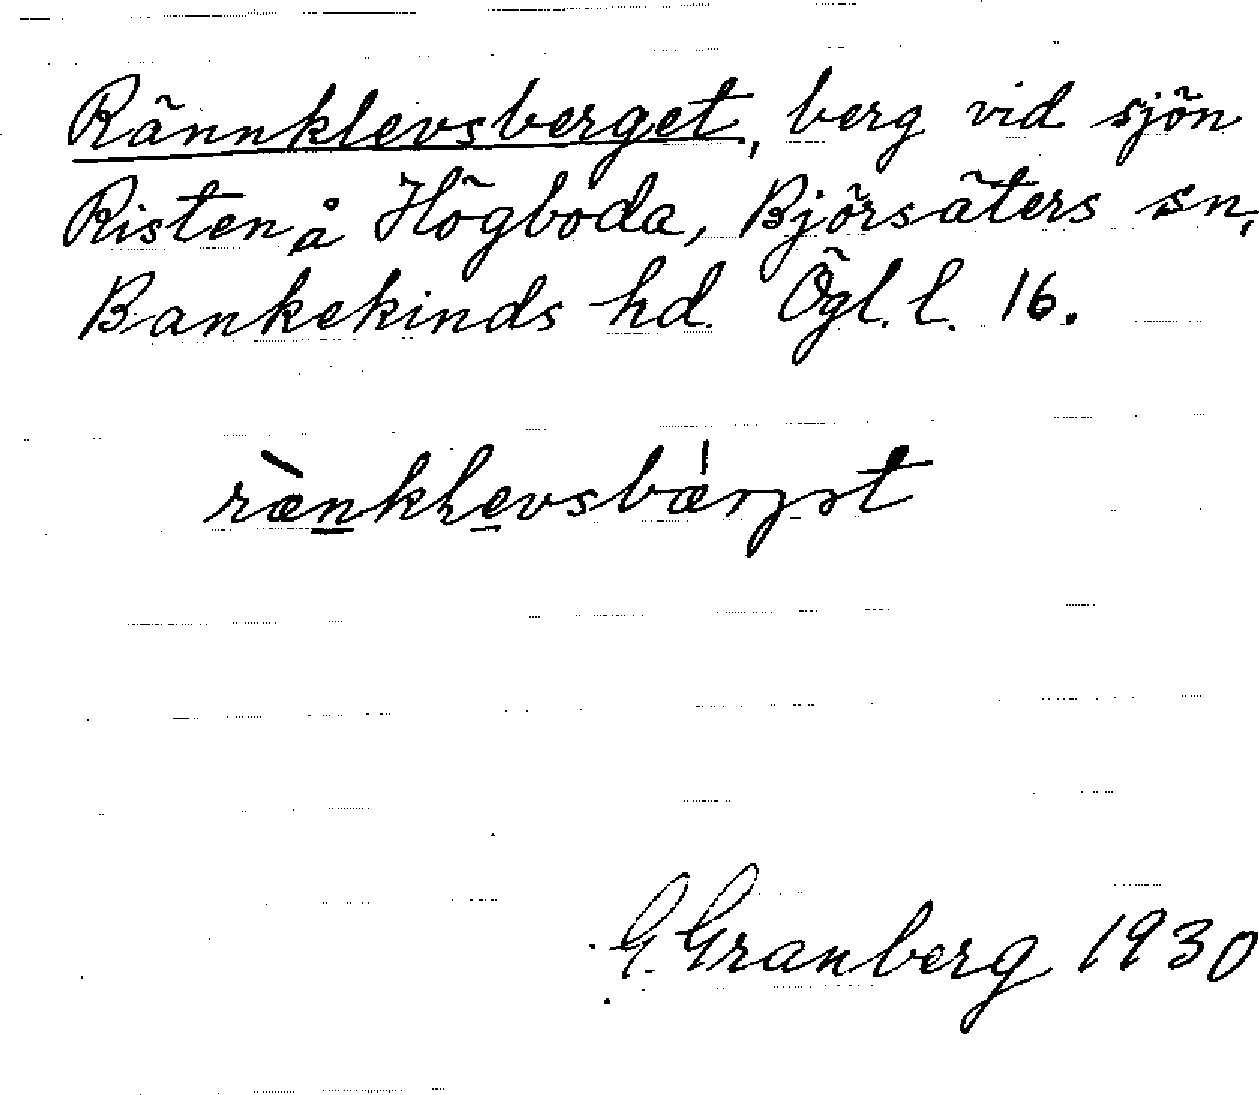 Rännklevsberget, berg vid sjön
Risten å Högboda, Björsäters sn,
Bankekinds hd. Ögl. l. 16.
G Granberg 1930